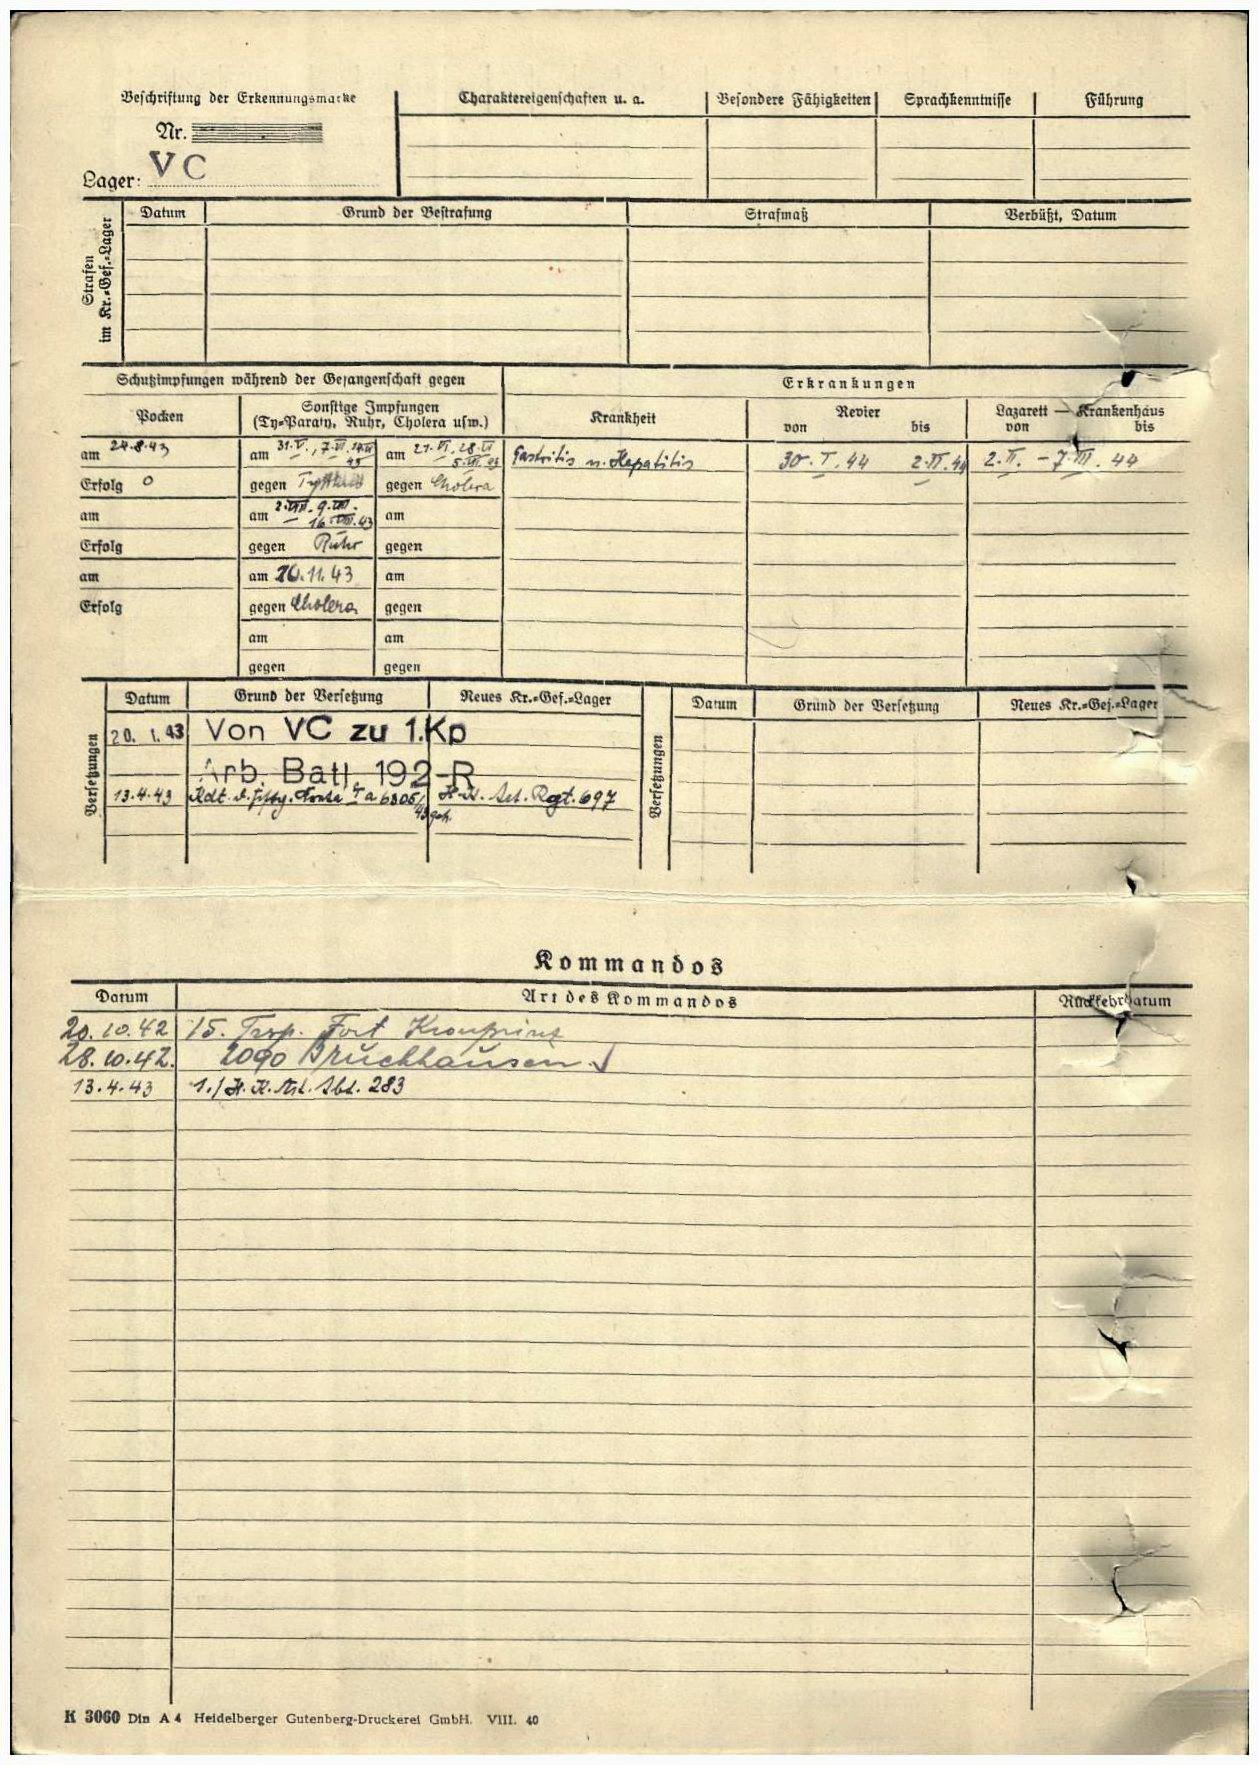 Beschriftung der Erkennungsmarke
Nr.
Lager: VC
Charaktereigenschaften u. a.
Besondere Fähigkeiten
Sprachkenntnisse
Führung
Strafen
im Kr.=Gef.=Lager
Datum
Grund der Bestrafung
Strafmaß
Verbüßt, Datum
Schutzimpfungen während der Gefangenschaft gegen
Erkrankungen
Pocken
Sonstige Impfungen
(Ty=Paraty, Ruhr, Cholera usw.)
Krankheit
Revier
von bis
Lazarett — Krankenhaus
von bis
am 24.8.43
am 31.V., 7.VI. 14.VI 43
am 21.VI. 28.VI 5.VII.43
Gastritis u. Hepatitis
30.I.44 2.II.44
2.II. – 7.III. 44
Erfolg 0
gegen
gegen Cholera
am
am 2.VIII. 9.VIII. 16.VIII.43
am
Erfolg
gegen Ruhr
gegen
am
am 26.11.43
am
Erfolg
gegen Cholera
gegen
am
am
gegen
gegen
Versetzungen
Datum
Grund der Versetzung
Neues Kr.=Gef.=Lager
Versetzungen
Datum
Grund der Versetzung
Neues Kr.=Gef.=Lager
20. 1. 43 Von VC zu 1.Kp
Arb. Batl. 192-R
13.4.43 Kdt. d. H.K. Art. Rgt. 697
Kommandos
Datum
Art des Kommandos
Rückkehrdatum
20.10.42 15. Trsp. Fort Kronprinz
28.10.42. 2090 Bruchhausen
13.4.43 1./H.K.Art.Abt. 283
K 3060 Din A 4 Heidelberger Gutenberg-Druckerei GmbH. VIII. 40